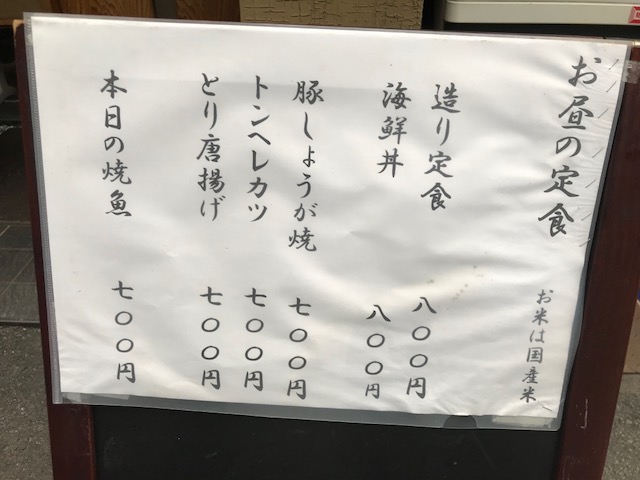 お昼の定食
お米は国産米
造り定食 八〇〇円
海鮮丼 八〇〇円
豚しょうが焼 七〇〇円
トンヘレカツ 七〇〇円
とり唐揚げ 七〇〇円
本日の焼魚 七〇〇円